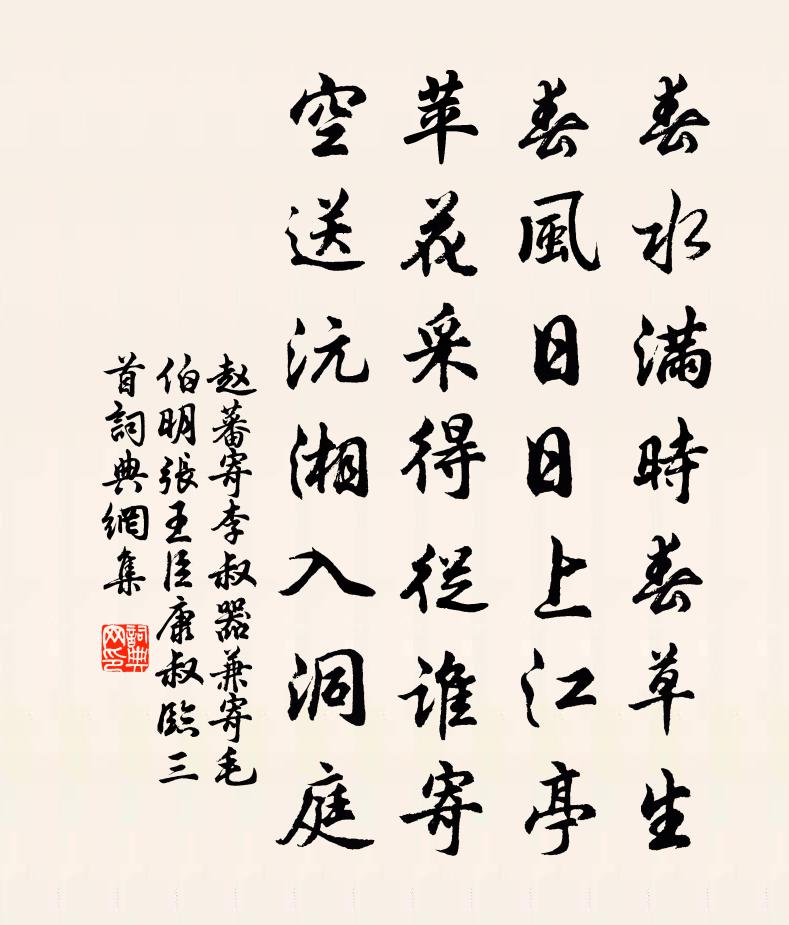 春水滿時春草生
春風日日上江亭
苹花采得從誰寄
空送沅湘入洞庭
赵蕃寄李叔器兼寄毛
伯明張王臣康叔臨三
首詞典網集
詞典
网印